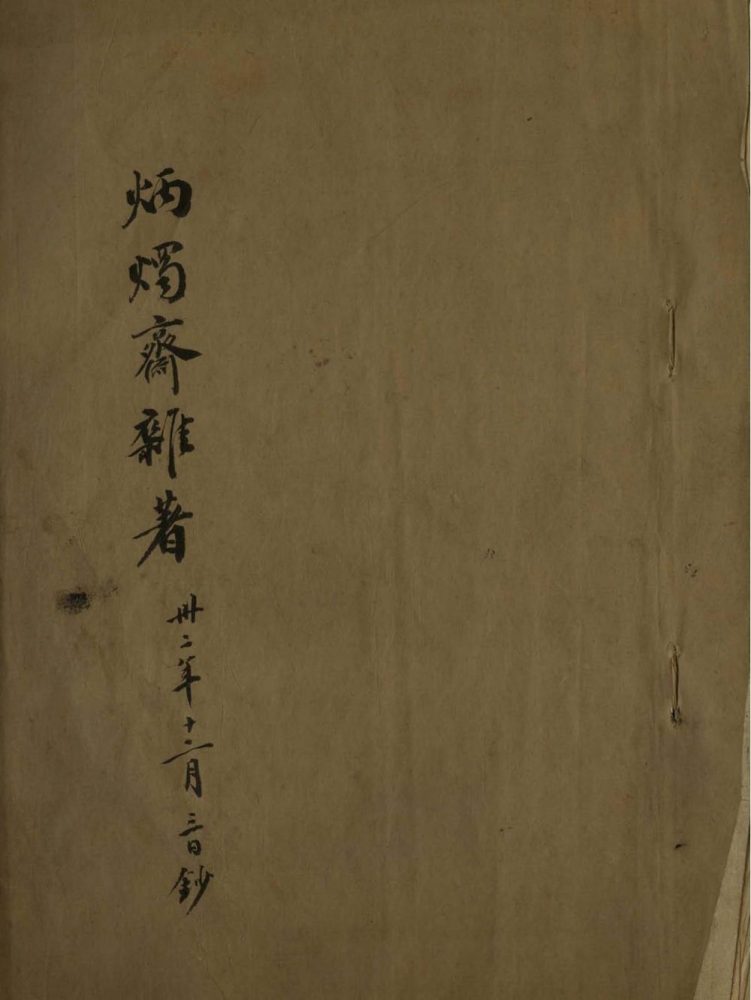 炳燭齋雜著
卅二年十二月三日鈔